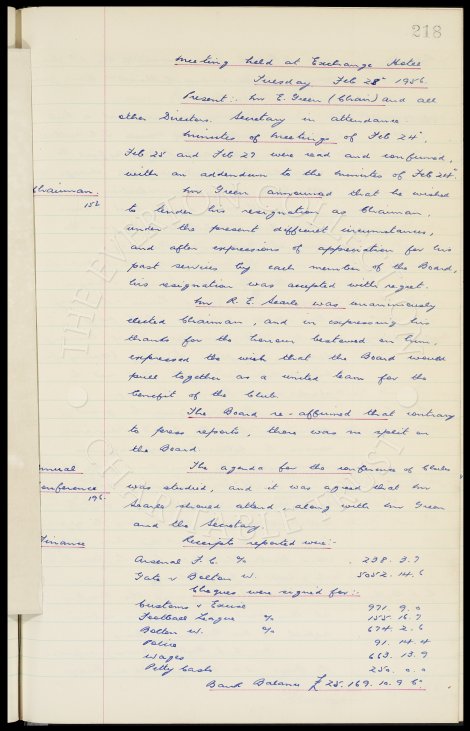 218
Meeting held at Exchange Hotel
Tuesday Feb 28th 1956.
Present:- Mr E. Green (Chair) and all
other Directors. Secretary in attendance.
Minutes of Meetings of Feb 24th,
Feb 25 and Feb 27 were read and confirmed,
with an addendum to the minutes of Feb 24th.
Chairman.
152
Mr Green announced that he wished
to tender his resignation as Chairman,
under the present difficult circumstances,
and after expressions of appreciation for his
past services by each member of the Board,
his resignation was accepted with regret.
Mr R. E. Searle was unanimously
elected Chairman, and in expressing his
thanks for the honour bestowed on him,
expressed the wish that the Board would
pull together as a united team for the
benefit of the Club.
The Board re-affirmed that contrary
to press reports, there was no split on
the Board.
Annual
Conference
196
The agenda for the conference of Clubs
was studied, and it was agreed that Mr
Searle should attend, along with Mr Green
and the Secretary.
Finance
Receipts reported were:-
Arsenal F.C. %
238. 3. 7
Gate v Bolton W.
5052. 14. 6
Cheques were signed for:-
Customs & Excise
971. 9. 0
Football League %
155. 16. 7
Bolton W. %
674. 2. 6
Police
91. 14. 4
Wages
663. 13. 9
Petty Cash
250. 0. 0
Bank Balance £25,169. 10. 9.
THE EVERTON COLLECTION
CHARITABLE TRUST